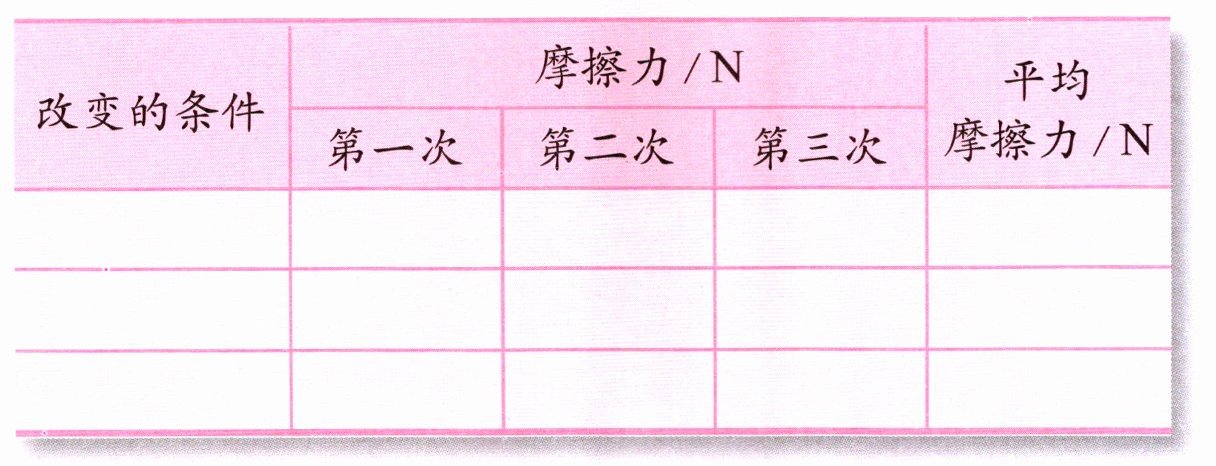 改变的条件
摩擦力/N
平均
摩擦力/N
第一次
第二次
第三次